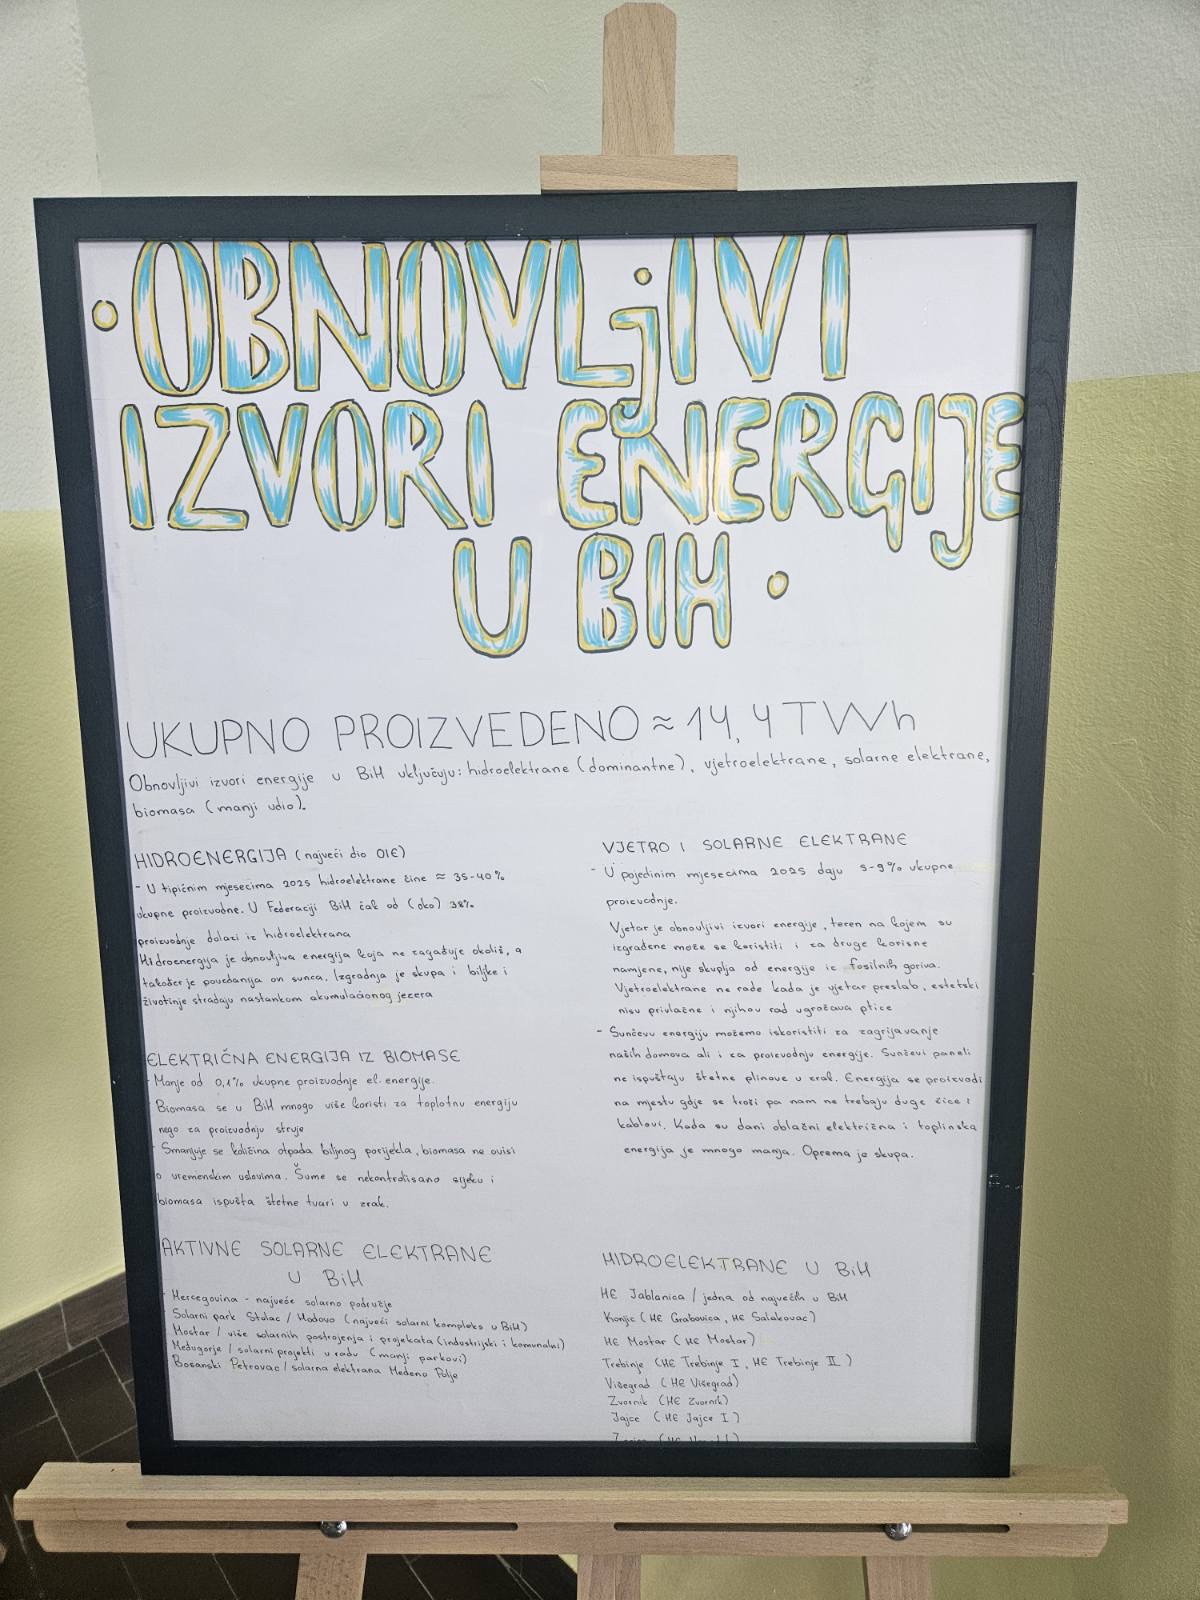 • OBNOVLjIVI
IZVORI ENERGIJE
U BIH •
UKUPNO PROIZVEDENO ≈ 14,4 TWh
Obnovljivi izvori energije u BiH uključuju: hidroelektrane (dominantne), vjetroelektrane, solarne elektrane,
biomasa (manji udio).
HIDROENERGIJA (najveći dio OIE)
- U tipičnim mjesecima 2025 hidroelektrane čine ≈ 35-40%
ukupne proizvodne. U Federaciji BiH čak od (oko) 38%
proizvodnje dolazi iz hidroelektrana
Hidroenergija je obnovljiva energija koja ne zagađuje okoliš, a
također je pouzdanija on sunca. Izgradnja je skupa i biljke i
životinje stradaju nastankom akumulacionog jezera
ELEKTRIČNA ENERGIJA IZ BIOMASE
- Manje od 0,1% ukupne proizvodnje el. energije.
- Biomasa se u BiH mnogo više koristi za toplotnu energiju
nego za proizvodnju struje
- Smanjuje se količina otpada biljnog porijekla, biomasa ne ovisi
o vremenskim uslovima. Šume se nekontrolisano sijeku i
biomasa ispušta štetne tvari u zrak.
AKTIVNE SOLARNE ELEKTRANE
U BiH
- Hercegovina - najveće solarno područje
Solarni park Stolac / Hodovo (najveći solarni kompleks u BiH)
Mostar / više solarnih postrojenja i projekata (industrijski i komunalni)
Međugorje / solarni projekti u radu (manji parkovi)
Bosanski Petrovac / solarna elektrana Medeno Polje
VJETRO I SOLARNE ELEKTRANE
- U pojedinim mjesecima 2025 daju 5-9% ukupne
proizvodnje.
Vjetar je obnovljivi izvori energije, teren na kojem su
izgrađene može se koristiti i za druge korisne
namjene, nije skuplja od energije iz fosilnih goriva.
Vjetroelektrane ne rade kada je vjetar preslab, estetski
nisu privlačne i njihov rad ugrožava ptice
- Sunčevu energiju možemo iskoristiti za zagrijavanje
naših domova ali i za proizvodnju energije. Sunčevi paneli
ne ispuštaju štetne plinove u zrak. Energija se proizvodi
na mjestu gdje se troši pa nam ne trebaju duge žice i
kablovi. Kada su dani oblačni električna i toplinska
energija je mnogo manja. Oprema je skupa.
HIDROELEKTRANE U BiH
HE Jablanica / jedna od najvećih u BiH
Konjic (HE Grabovica, HE Salakovac)
HE Mostar (HE Mostar)
Trebinje (HE Trebinje I, HE Trebinje II)
Višegrad (HE Višegrad)
Zvornik (HE Zvornik)
Jajce (HE Jajce I)